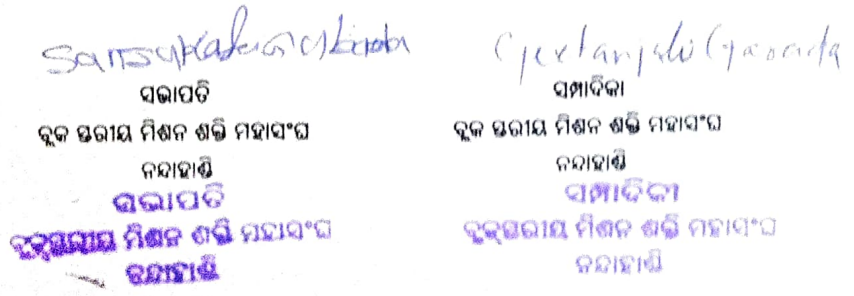 ସଭାପତି
ବ୍ଲକ ସ୍ତରୀୟ ମିଶନ ଶକ୍ତି ମହାସଂଘ
ନନ୍ଦାହାଣ୍ଡି
ସଭାପତି
ବ୍ଲକ୍‌ସ୍ତରୀୟ ମିଶନ ଶକ୍ତି ମହାସଂଘ
ନନ୍ଦାହାଣ୍ଡି
Geetanjali
ସମ୍ପାଦିକା
ବ୍ଲକ ସ୍ତରୀୟ ମିଶନ ଶକ୍ତି ମହାସଂଘ
ନନ୍ଦାହାଣ୍ଡି
ସମ୍ପାଦିକା
ବ୍ଲକ୍‌ସ୍ତରୀୟ ମିଶନ ଶକ୍ତି ମହାସଂଘ
ନନ୍ଦାହାଣ୍ଡି